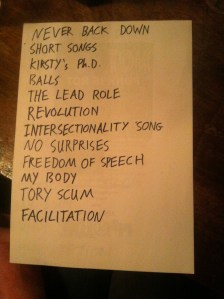 NEVER BACK DOWN
SHORT SONGS
KIRSTY's Ph.D.
BALLS
THE LEAD ROLE
REVOLUTION
INTERSECTIONALITY SONG
NO SURPRISES
FREEDOM OF SPEECH
MY BODY
TORY SCUM
FACILITATION